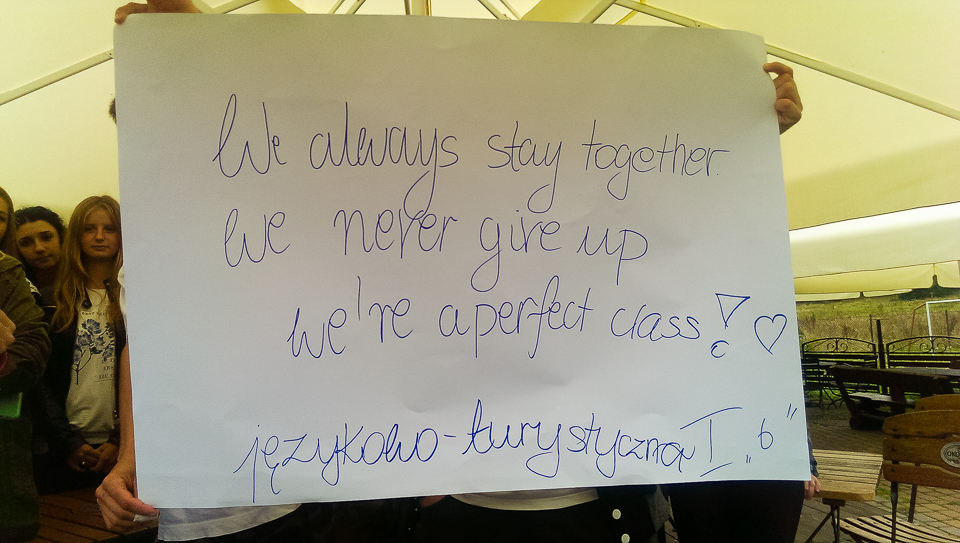 We always stay together.
We never give up
we're a perfect class! ♡
językowo-turystyczna I „b"